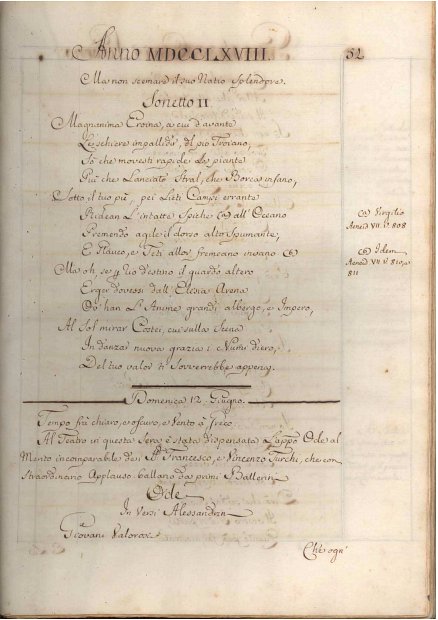 Anno MDCCLXVIII.
52
Ma non scemare il suo Natio Splendore.
Sonetto II.
Magnanima Eroina, a cui d'avante
Le schiere impallidir, del pio Troiano,
Tò che movesti rapide le piante
Più che Lanciato Stral, che Borea insano,
Sotto il tuo piè, pei Lieti Campi errante
Ridean L'intatte Spiche (a) all'Oceano
Premendo agile il dorso alto Spumante,
E Glauco, e Teti allor fremeano invano (b)
Ma oh, se per tuo destino il guardo altero
Erger dovessi dall'Elisia Arena
Ov'han L'Anime grandi albergo, e Impero,
Al Sol mirar Costei, cui sulla Scena
In danzar nuova grazia i Numi diero,
Del tuo valor ti Sovverrebbe appena.
(a) Virgilio
Aeneid VII. V. 808
(b) Idem
Aeneid VII V. 810, e
811
Domenica 12. Giugno.
Tempo frà chiaro, e oscuro, e Vento à Greco.
Al Teatro in questa Sera è stata dispensata L'appō Ode al
Merito incomparabile dei SS. Francesco, e Vincenzo Turchi, che con
Straordinario Applauso ballano da primi Ballerini
Ode
In Versi Alessandrin
Giovani Valorosi
Ch'è ogn'